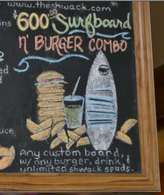 www.theshwack.com
$600 Surfboard
n' BURGER COMBO
Any custom board,
w/ any burger, drink,
unlimited shwack spuds.